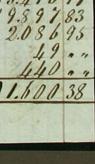 9.897 83
2.086 95
49 " "
440 " "
11.600 38